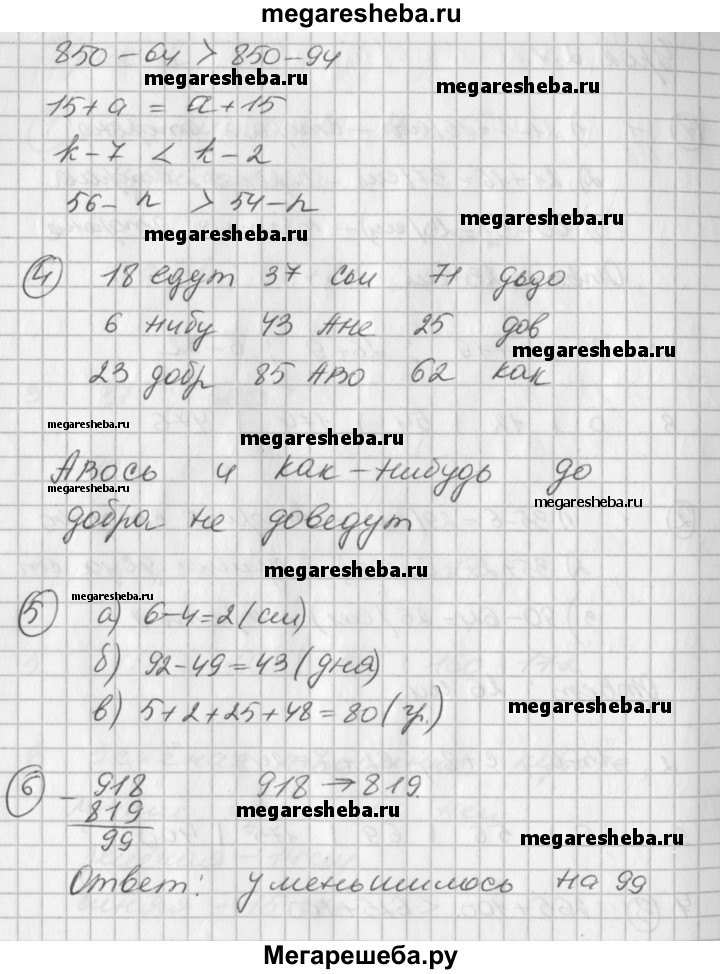 megaresheba.ru
850 - 64 > 850 - 94
megaresheba.ru megaresheba.ru
15 + a = a + 15
k - 7 < k - 2
56 - n > 54 - n
megaresheba.ru megaresheba.ru
4 18 едут 37 сьи 71 дьдо
6 нибу 43 Ане 25 дов
megaresheba.ru
23 добр 85 АВО 62 как
megaresheba.ru megaresheba.ru
АВОСЬ и как-нибудь до
megaresheba.ru megaresheba.ru
добра не доведут
megaresheba.ru
5 а) 6-4=2 (см)
megaresheba.ru
б) 92-49=43 (дня)
в) 5+2+25+48=80 (гр.)
megaresheba.ru
6 - 918 918 → 819
819
megaresheba.ru
99
megaresheba.ru
Ответ: уменьшилось на 99
Мегарешеба.ру